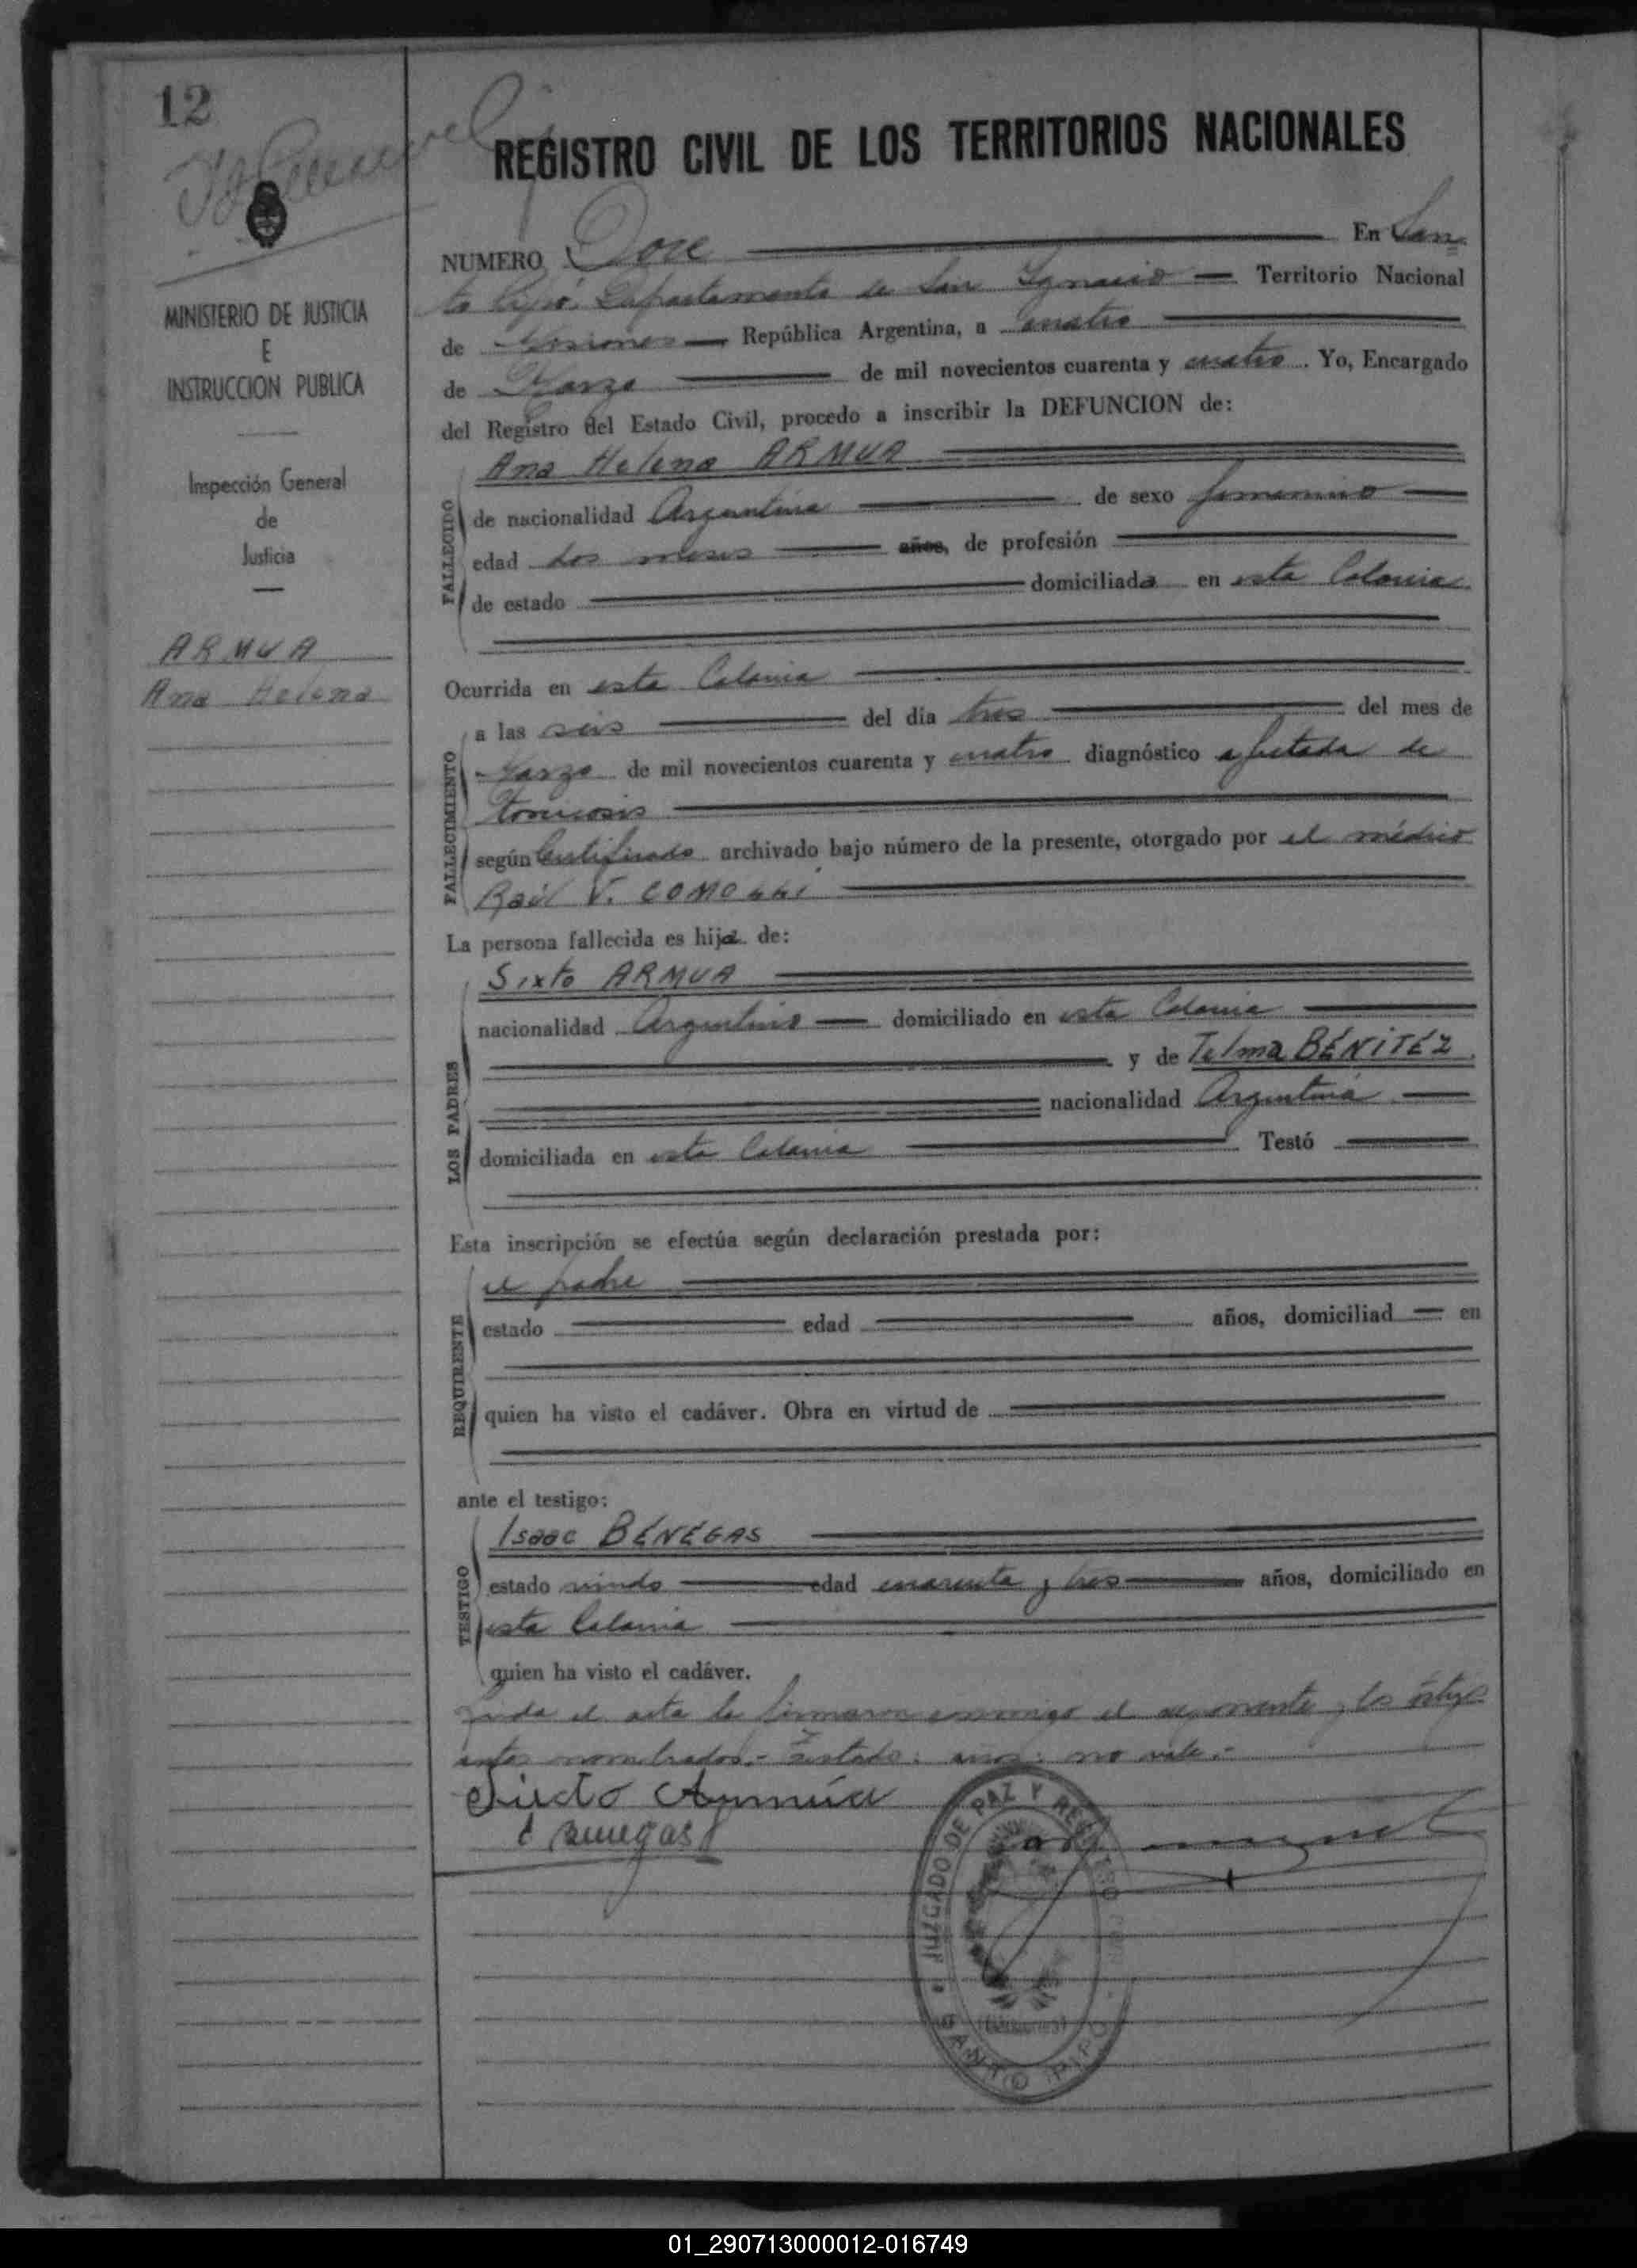 12
REGISTRO CIVIL DE LOS TERRITORIOS NACIONALES
MINISTERIO DE JUSTICIA
E
INSTRUCCION PUBLICA
Inspección General
de
Justicia
ARMUA
Ana Helena
NUMERO Doce En San=
to Pipó. Departamento de San Ignacio Territorio Nacional
de Misiones República Argentina, a cuatro
de Marzo de mil novecientos cuarenta y cuatro. Yo, Encargado
del Registro del Estado Civil, procedo a inscribir la DEFUNCION de:
FALLECIDO
Ana Helena ARMUA
de nacionalidad Argentina de sexo femenino
edad dos meses años, de profesión
de estado domiciliada en esta Colonia
Ocurrida en esta Colonia
FALLECIMIENTO
a las seis del día tres del mes de
Marzo de mil novecientos cuarenta y cuatro diagnóstico afectada de
según Certificado archivado bajo número de la presente, otorgado por el médico
Raúl V. COMOLLI
La persona fallecida es hija de:
LOS PADRES
Sixto ARMUA
nacionalidad Argentino domiciliado en esta Colonia
y de Telma BÉNITÉZ
nacionalidad Argentina
domiciliada en esta Colonia Testó
Esta inscripción se efectúa según declaración prestada por:
REQUIRENTE
el padre
estado edad años, domiciliad en
quien ha visto el cadáver. Obra en virtud de
ante el testigo:
TESTIGO
Isaac BÉNÉGAS
estado viudo edad cuarenta y tres años, domiciliado en
esta Colonia
quien ha visto el cadáver.
el acta la firmaron conmigo el exponente y los
antes nombrados.- Testado: años: no vale.-
Sixto Armúa
Benegas
JUZGADO DE PAZ Y REGISTRO
SANTO PIPO
01_290713000012-016749